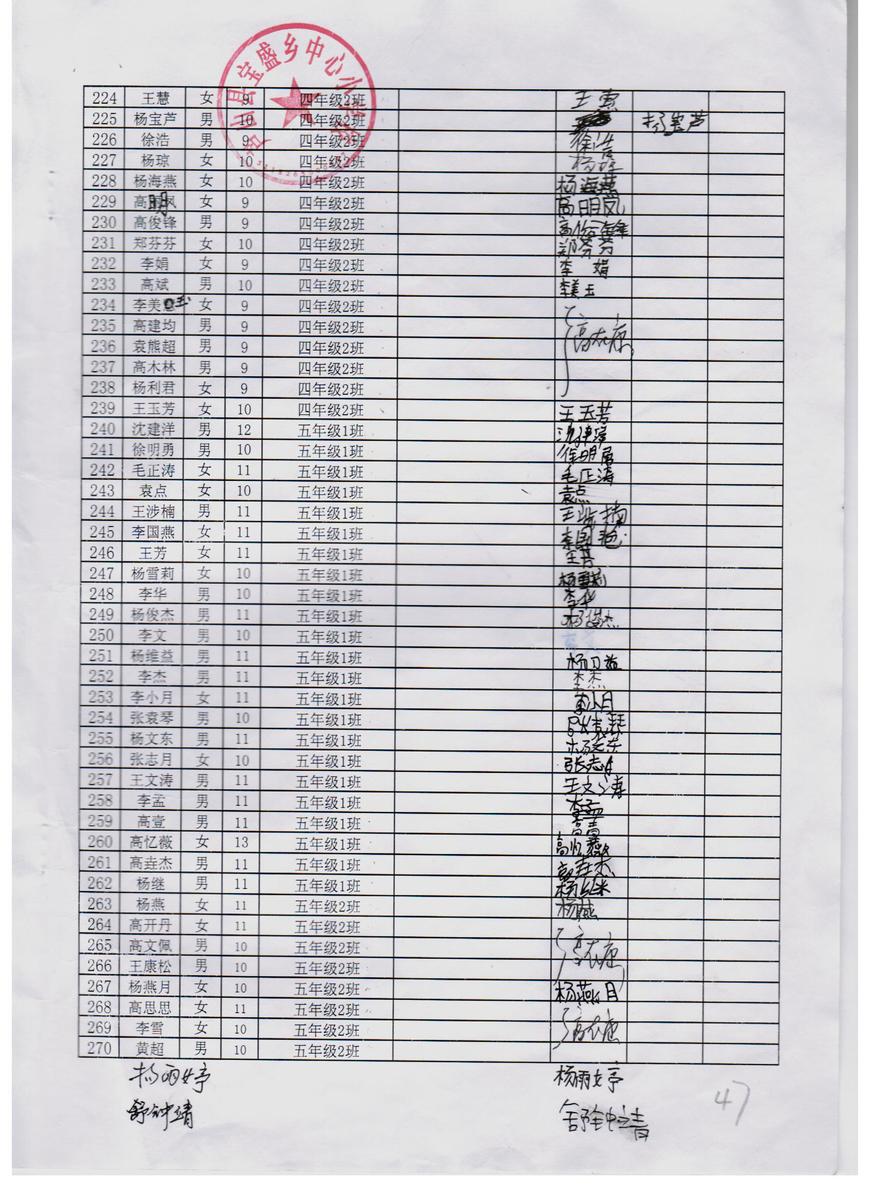 宝盛乡中心小
224 王慧 女 9 四年级2班
225 杨宝芦 男 10 四年级2班 杨宝芦
226 徐浩 男 9 四年级2班 徐浩
227 杨琼 女 10 四年级2班
228 杨海燕 女 10 四年级2班 杨海燕
229 高明凤 女 9 四年级2班 高明凤
230 高俊锋 男 9 四年级2班 高俊锋
231 郑芬芬 女 10 四年级2班 郑芬芬
232 李娟 女 9 四年级2班 李娟
233 高斌 男 10 四年级2班 李美玉
234 李美玉 女 9 四年级2班
235 高建均 男 9 四年级2班
236 袁熊超 男 9 四年级2班
237 高木林 男 9 四年级2班
238 杨利君 女 9 四年级2班
239 王玉芳 女 10 四年级2班 王玉芳
240 沈建洋 男 12 五年级1班
241 徐明勇 男 10 五年级1班
242 毛正涛 女 11 五年级1班 毛正涛
243 袁点 女 10 五年级1班 袁点
244 王涉楠 男 11 五年级1班
245 李国燕 女 11 五年级1班
246 王芳 女 11 五年级1班 王芳
247 杨雪莉 女 10 五年级1班 杨雪莉
248 李华 男 10 五年级1班 李华
249 杨俊杰 男 11 五年级1班 杨俊杰
250 李文 男 10 五年级1班
251 杨维益 男 11 五年级1班
252 李杰 男 11 五年级1班 李杰
253 李小月 女 11 五年级1班
254 张袁琴 男 10 五年级1班
255 杨文东 男 11 五年级1班
256 张志月 女 10 五年级1班 张志月
257 王文涛 男 11 五年级1班 王文涛
258 李孟 男 11 五年级1班 李孟
259 高壹 男 11 五年级1班
260 高忆薇 女 13 五年级1班 高忆薇
261 高垚杰 男 11 五年级1班
262 杨继 男 11 五年级1班 杨继
263 杨燕 女 11 五年级2班 杨燕
264 高开丹 女 11 五年级2班
265 高文佩 男 10 五年级2班
266 王康松 男 10 五年级2班
267 杨燕月 女 10 五年级2班 杨燕月
268 高思思 女 11 五年级2班
269 李雪 女 10 五年级2班
270 黄超 男 10 五年级2班
杨雨婷 杨雨婷
舒钟靖 舒钟靖
47